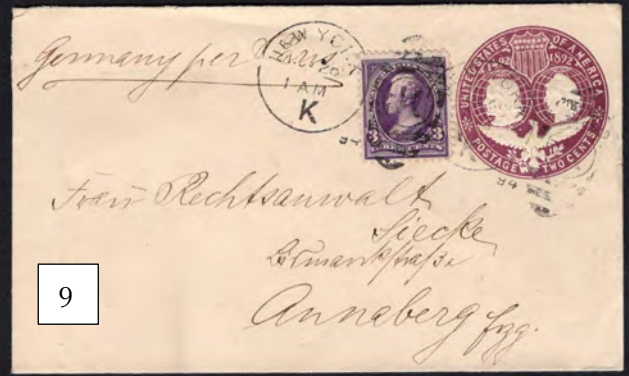 Germany per
NEW YORK
1 AM
K
94
3 3
UNITED STATES OF AMERICA
1492 1892
POSTAGE TWO CENTS
94
Frau Rechtsanwalt
Siecke
Bismarckstraße
Annaberg Erzg.
9